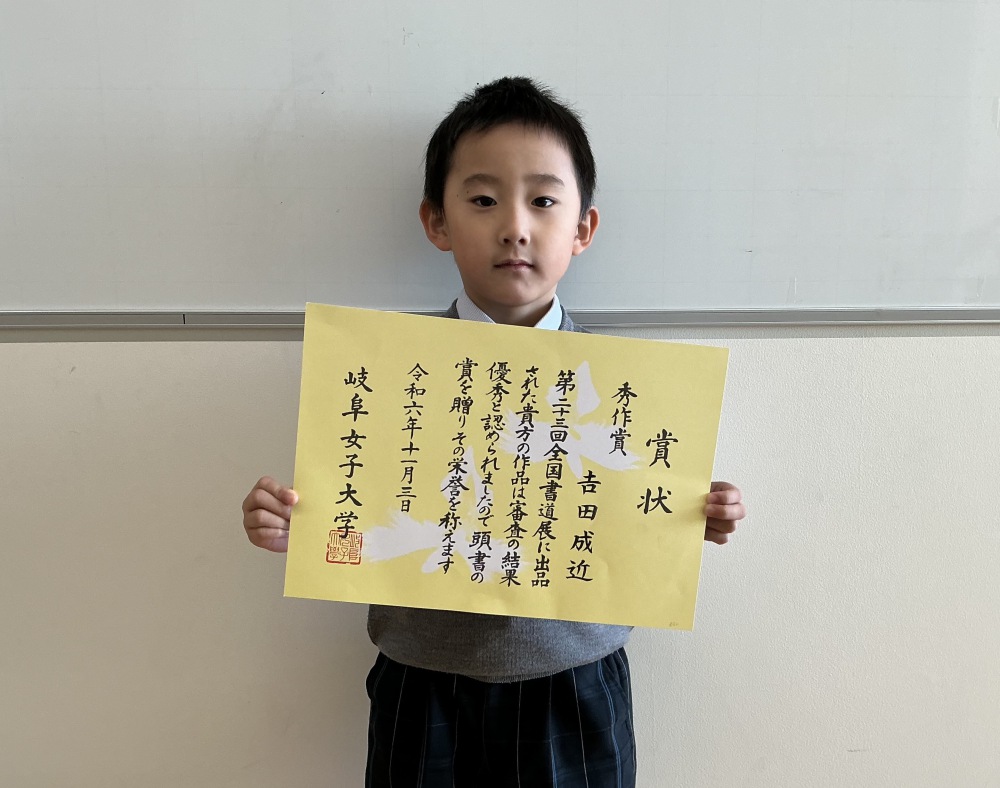 賞状
秀作賞
吉田成近
第二十三回全国書道展に出品
された貴方の作品は審査の結果
優秀と認められましたので頭書の
賞を贈りその栄誉を称えます
令和六年十一月三日
岐阜女子大学